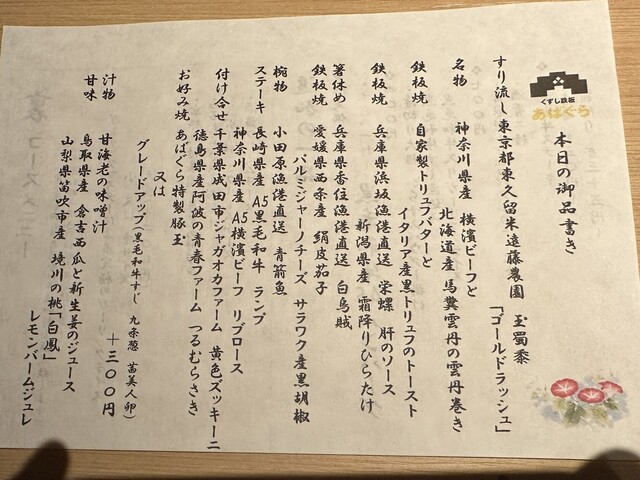 くずし鉄板
あばぐら
本日の御品書き
すり流し 東京都東久留米遠藤農園 玉蜀黍
「ゴールドラッシュ」
名物 神奈川県産 横濱ビーフと
北海道産 馬糞雲丹の雲丹巻き
鉄板焼 自家製トリュフバターと
イタリア産黒トリュフのトースト
鉄板焼 兵庫県浜坂漁港直送 栄螺 肝のソース
新潟県産 霜降りひらたけ
箸休め 兵庫県香住漁港直送 白烏賊
鉄板焼 愛媛県西条産 絹皮茄子
パルミジャーノチーズ サラワク産黒胡椒
椀物 小田原漁港直送 青箭魚
ステーキ 長崎県産 A5黒毛和牛 ランプ
神奈川県産 A5横濱ビーフ リブロース
付け合せ 千葉県成田市ジャガオカファーム 黄色ズッキーニ
徳島県産阿波の青春ファーム つるむらさき
お好み焼 あばぐら特製豚玉
又は
グレードアップ(黒毛和牛すじ 九条葱 茜美人卵)
+三〇〇円
汁物 甘海老の味噌汁
甘味 鳥取県産 倉吉西瓜と新生姜のジュース
山梨県笛吹市産 境川の桃「白鳳」
レモンバームジュレ